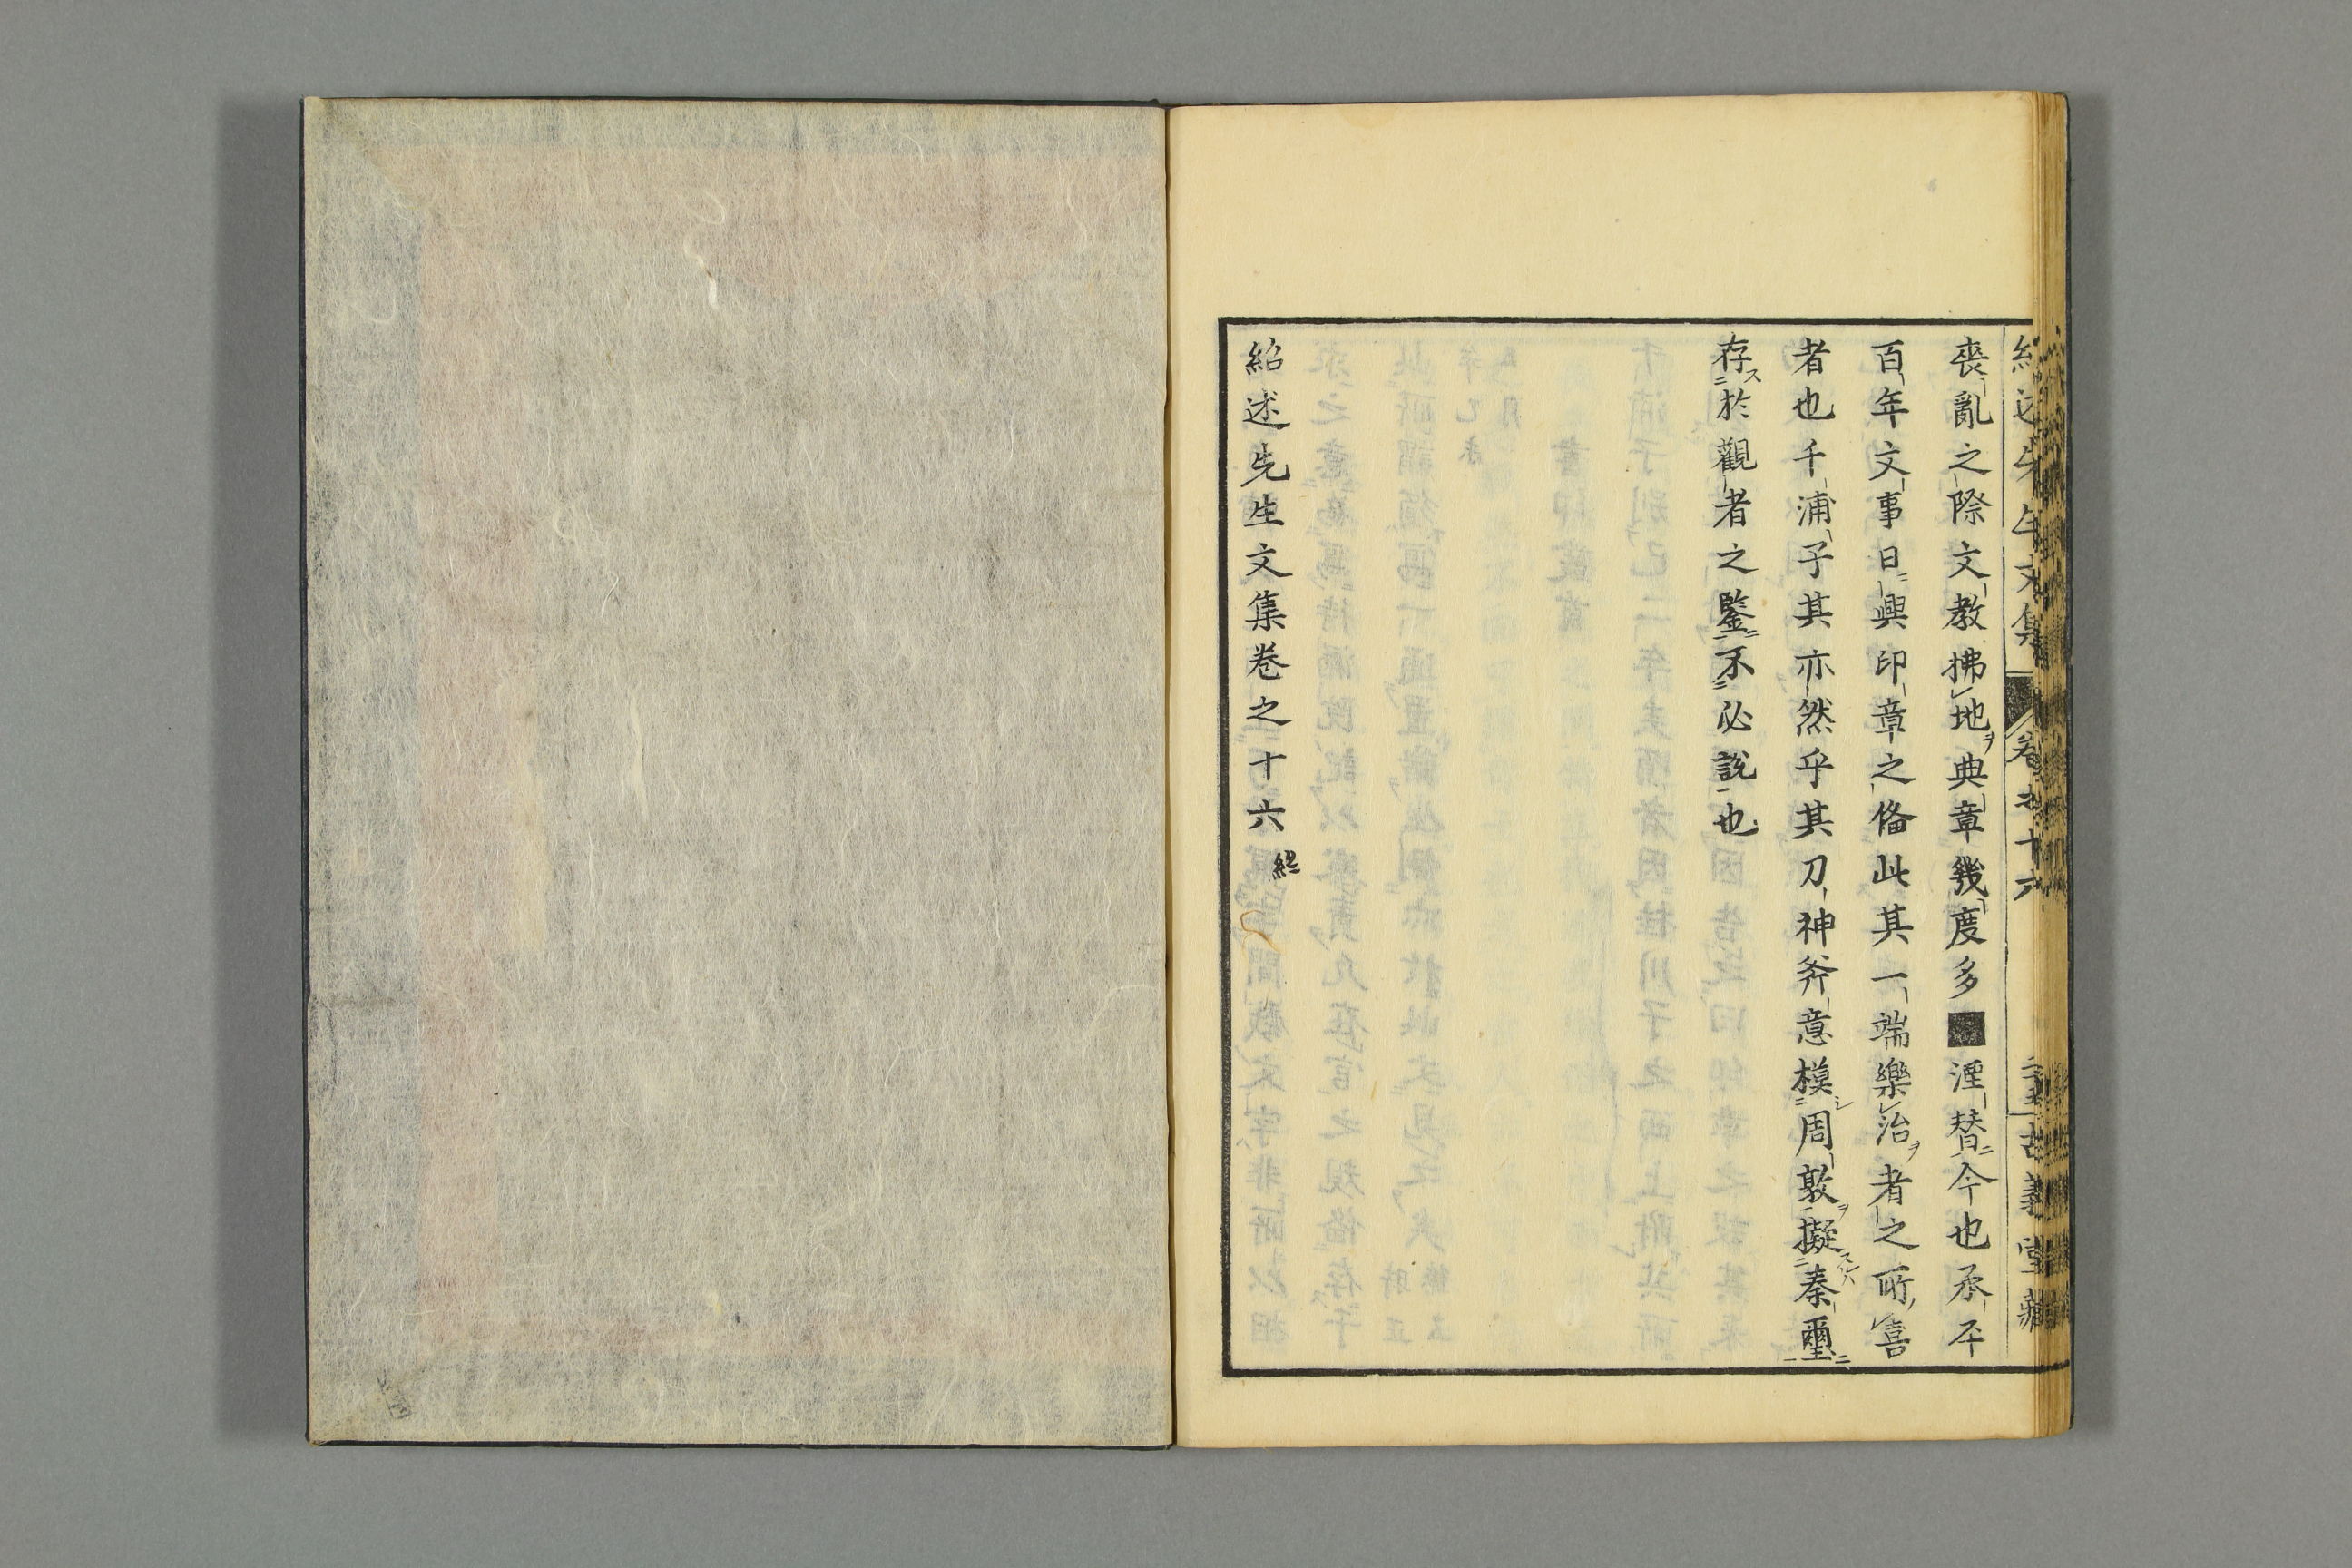 喪亂之際文教拂地典章幾度多■湮替今也承平
百年文事日興印章之俻此其一端樂治者之所喜
者也千浦子其亦然乎其刀神斧意模周敦擬秦璽
存於觀者之鑒不必說也
紹述先生文集卷之十六 終
紹述先生文集 卷之十六 古義堂藏